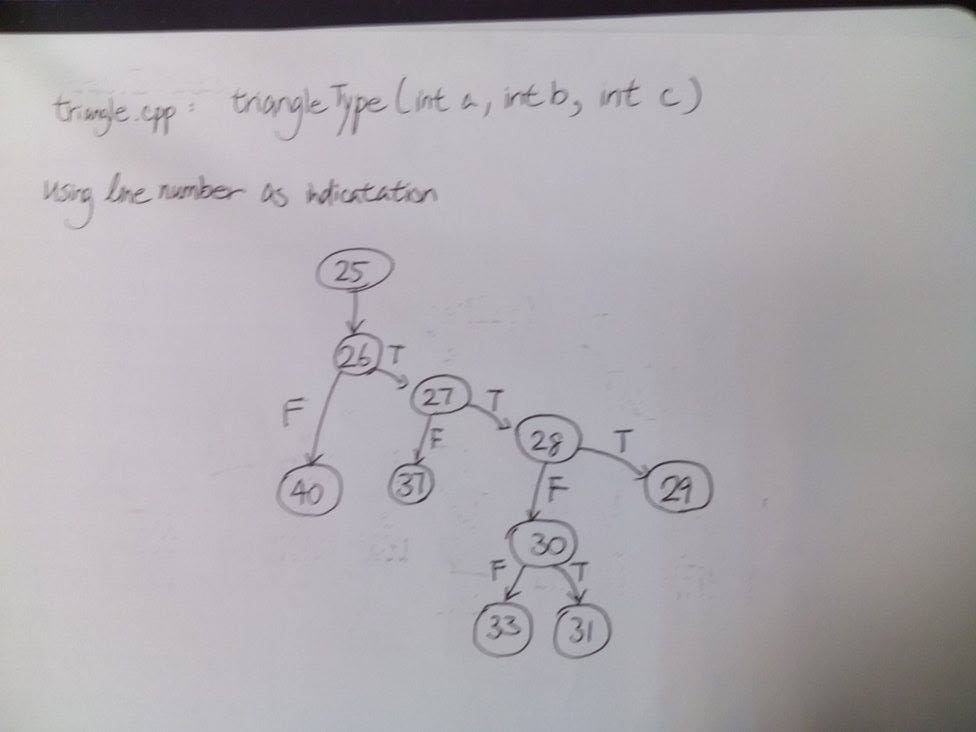 triangle.cpp: triangleType (int a, int b, int c)
using line number as indicatation
25
26 T
27 T
F
F
28 T
40
37
29
F
30
F T
33 31